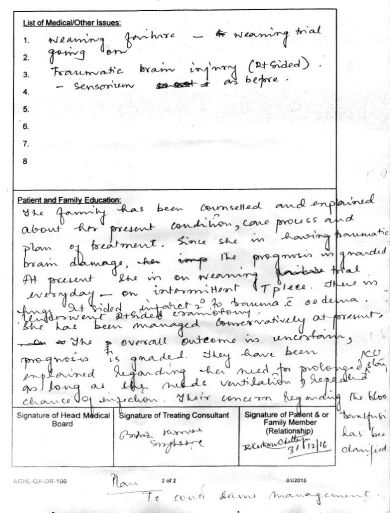 List of Medical/Other Issues:
1. weaning failure – weaning trial
going on
2.
3. Traumatic brain injury (Rt sided).
4. – sensorium as before.
5.
6.
7.
8
Patient and Family Education:
The family has been counselled and explained
about her present condition, care process and
plan of treatment. Since she is having traumatic
brain damage, the prognosis is guarded
At present she is on weaning trial
everyday – on intermittent T piece. There is
Rt sided infarct 2° to trauma c̄ oedema.
underwent Rt sided craniotomy.
She has been managed conservatively at present.
– The overall outcome is uncertain,
prognosis is guarded. They have been
explained regarding her need for prolonged ICU stay
as long as she needs ventilation, & repeated
chance of infection. Their concern regarding the blood
transfusion
has been
clarified
Signature of Head Medical Board
Signature of Treating Consultant
Signature of Patient & or Family Member (Relationship)
31/12/16
AGHL-QA-DR-100 2 of 2 01/2015
Plan
To cont same management.